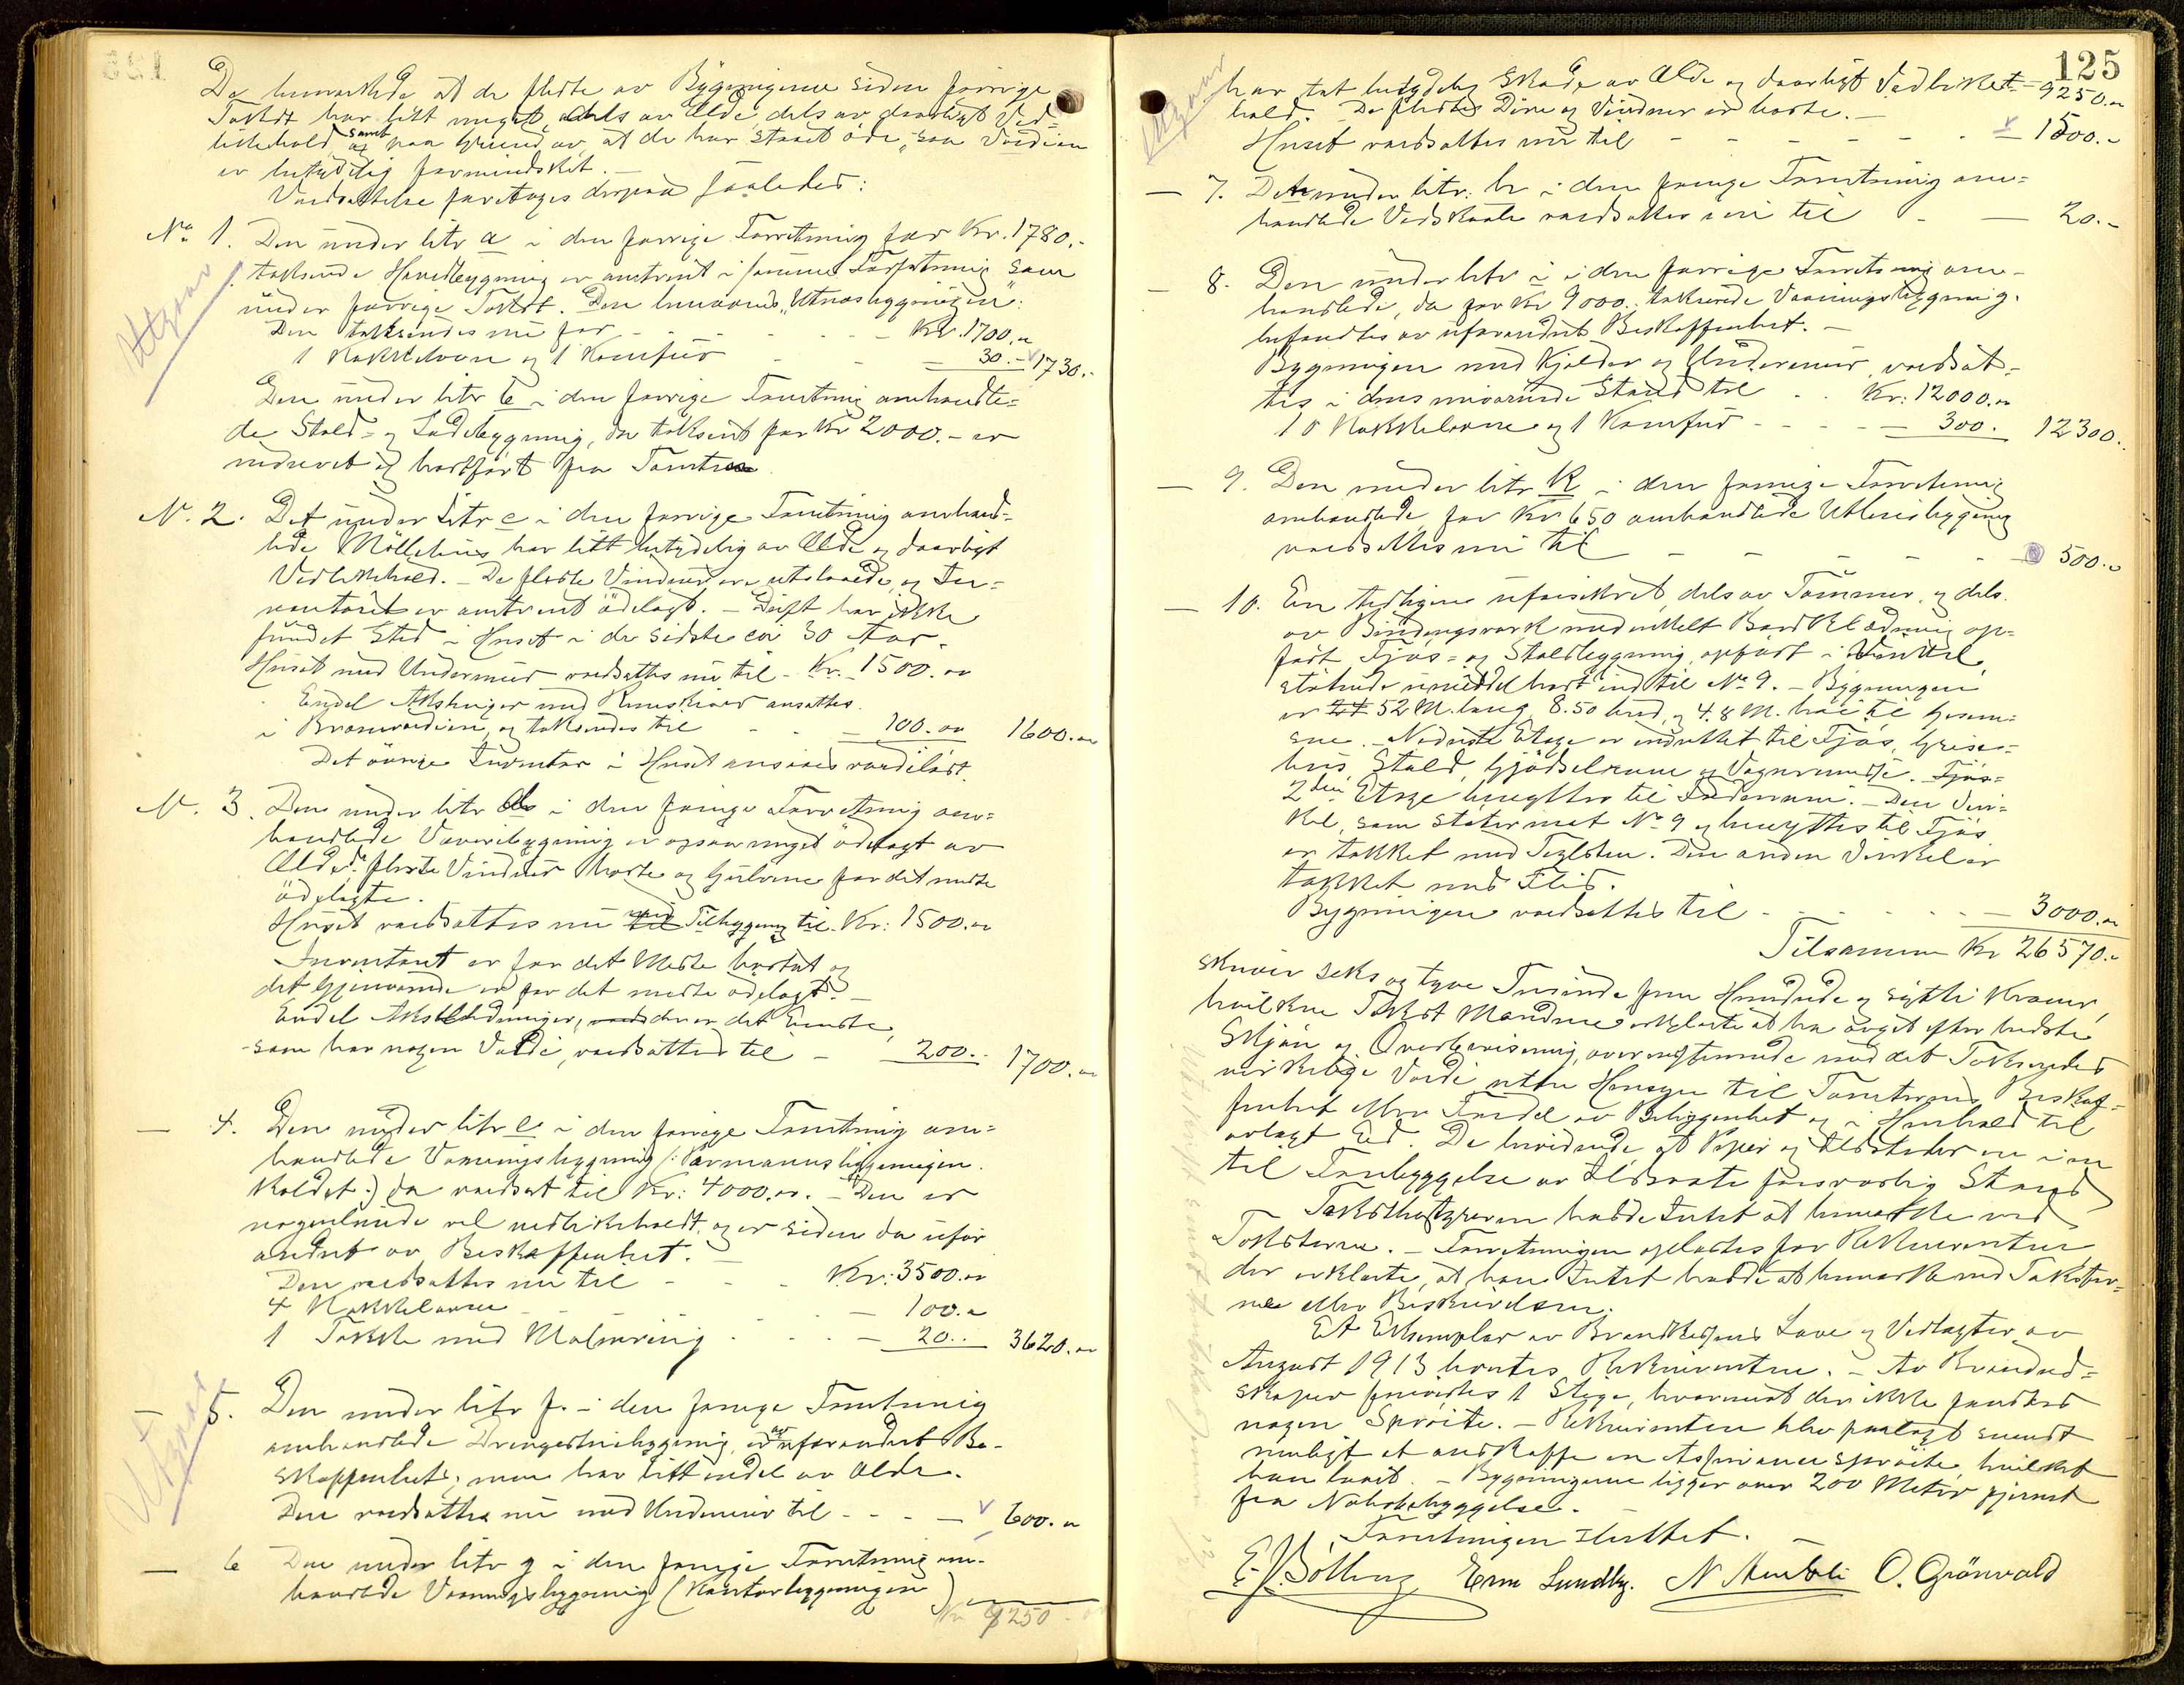 De bemerkede at de fleste av Bygningerne siden forrige
Takst har litt meget, dels av Ælde, dels av daarligt Ved-
likehold samt paa Grund av, at de har staaet øde, saa Værdien
er betydelig formindsket. –
Værdsættelse foretoges derpaa saaledes:
No 1. Den under litr a i den forrige Forretning for Kr. 1780.-
takserede Hovedbygning er omtrent i samme Forfatning som
under forrige Takst. Den benævnes „Utnæsbygningen".
Utgaar
Den takseredes nu for - - - Kr. 1700.-
1 Kakkelovn og 1 Komfür - - 30.- 1730.-
Den under litr b i den forrige Forretning omhandle-
de Stald- og Ladebygning, da taksert for Kr 2000.- er
nedrevet og bortført fra Tomten
N. 2. Det under Litr c i den forrige Forretning omhand-
lede Möllehus har litt betydelig av Ælde og daarligt
Vedlikehold. – De fleste Vinduer er utslaaede, og In-
ventaret er omtrent ödelagt. – Drift har ikke
fundet Sted i Huset i de sidste ca 30 Aar.
Huset med Undermur værdsattes nu til - Kr. 1500.-
Endel Akslinger med Remskiver ansattes
i Brandværdien, og takseredes til - - 100.- 1600.-
Det övrige Inventar i Huset ansees værdilöst.
N. 3. Den under litr d i den forrige Forretning om-
handlede Væveribygning er ogsaa meget ödelagt av
Ælde, de fleste Vinduer borte og Gulvene for det meste
ödelagte.
Huset værdsattes nu med Tilbygning til Kr: 1500.-
Inventaret er for det Meste borttat og
det Gjenværende er for det meste ödelagt. –
Endel Aksledninger, der er det Eneste,
som har nogen Værdi, værdsattes til - 200.- 1700.-
— 4. Den under litr e i den forrige Forretning om-
handlede Vaaningsbygning (: Formannsbygningen
kaldet :) da værdsat til Kr: 4000.-. – Den er
nogenlunde vel vedlikeholdt, og er siden da ufor
andret av Beskaffenhet. –
Den værdsattes nu til - - - Kr: 3500.-
4 Kakkelovne - - - 100.-
1 Takke med Malmring - - - 20.- 3620.-
Utgaar
— 5. Den under litr f. i den forrige Forretning
omhandlede Drengestuebygning, er av uforandret Be-
skaffenhet; men har litt endel av Ælde.
Den værdsattes nu med Undermur til - - - 600.-
— 6 Den under litr g i den forrige Forretning om-
handlede Vaaningsbygning (Kontorbygningen)
Kr 9250
125
Utgaar
har tat betydelig Skade av Ælde og daarligt Vedlike- 9250.-
hold. De fleste Döre og Vinduer er borte. –
Huset værdsattes nu til - - - - 1500.-
— 7. Det under litr. h i den forrige Forretning om-
handlede Vedskaale værdsattes nu til - — 20.-
— 8. Den under litr i i den forrige Forretning om-
handlede, da for Kr 9000. takserede Vaaningsbygning.
befandtes av uforandret Beskaffenhet. –
Bygningen med Kjelder og Undermur, værdsat-
tes i dens nuværende Stand til - - Kr: 12000.-
10 Kakkelovne og 1 Komfür - - - 300.- 12300.
— 9. Den under litr k i den forrige Forretning
omhandlede for Kr 650 omhandlede Uthusbygning
værdsattes nu til - - - - 500.-
— 10. En tidligere uforsikret, dels av Tømmer, og dels
av Bindingsværk med enkelt Bordklædning op-
ført Fjös- og Staldbygning, opført i Vinkel,
stötende umiddelbart ind til No 9. – Bygningen
er 52 M. lang, 8.50 bred, og 4.8 M. høi til Gesim-
sen. – Nederste Etage er indrettet til Fjös, Grise-
hus, Stald, Gjödselrum og Vognremisse. Fjös-
2den Etage benyttes til Foderrum. – Den Vin-
kel, som støter mot No 9 og benyttes til Fjös
er tækket med Teglsten. Den anden Vinkel er
tækket med Flis.
Bygningen værdsattes til - - - - 3000.-
Tilsammen Kr 26570.-
skriver seks og tyve Tusinde fem Hundrede og sytti Kroner,
hvilken Takst Mændene erklærte at ha avgit efter bedste
Skjøn og Overbevisning, overensstemmende med det Takseredes
virkelige Værdi uten Hensyn til Tomternes Beskaf-
fenhet eller Fordel av Beliggenhet og i Henhold til
avlagt Ed. De bevidnede, at Piper og Ildsteder er i en
til Forebyggelse av Ildsvaade forsvarlig Stand
Takstbestyreren hadde Intet at bemerke ved
Taksterne. – Forretningen oplæstes for Rekvirenten
der erklærte, at han Intet hadde at bemærke ved Takster-
ne eller Beskrivelsen.
Et Eksemplar av Brandkassens Love og Vedtægter av
August 1913 leveertes Rekvirenten. – Av Brandred-
skaper forevistes 1 Stige, hvorimot der ikke fandtes
nogen Spröite. – Rekvirenten blev paalagt snarest
muligt at anskaffe en Assurancespröite, hvilket
han lovet. – Bygningerne ligger over 200 Meter fjernet
fra Nabobebyggelse.
Forretningen sluttet. –
E. Bölling Ern Lundby. N O. Grönvold